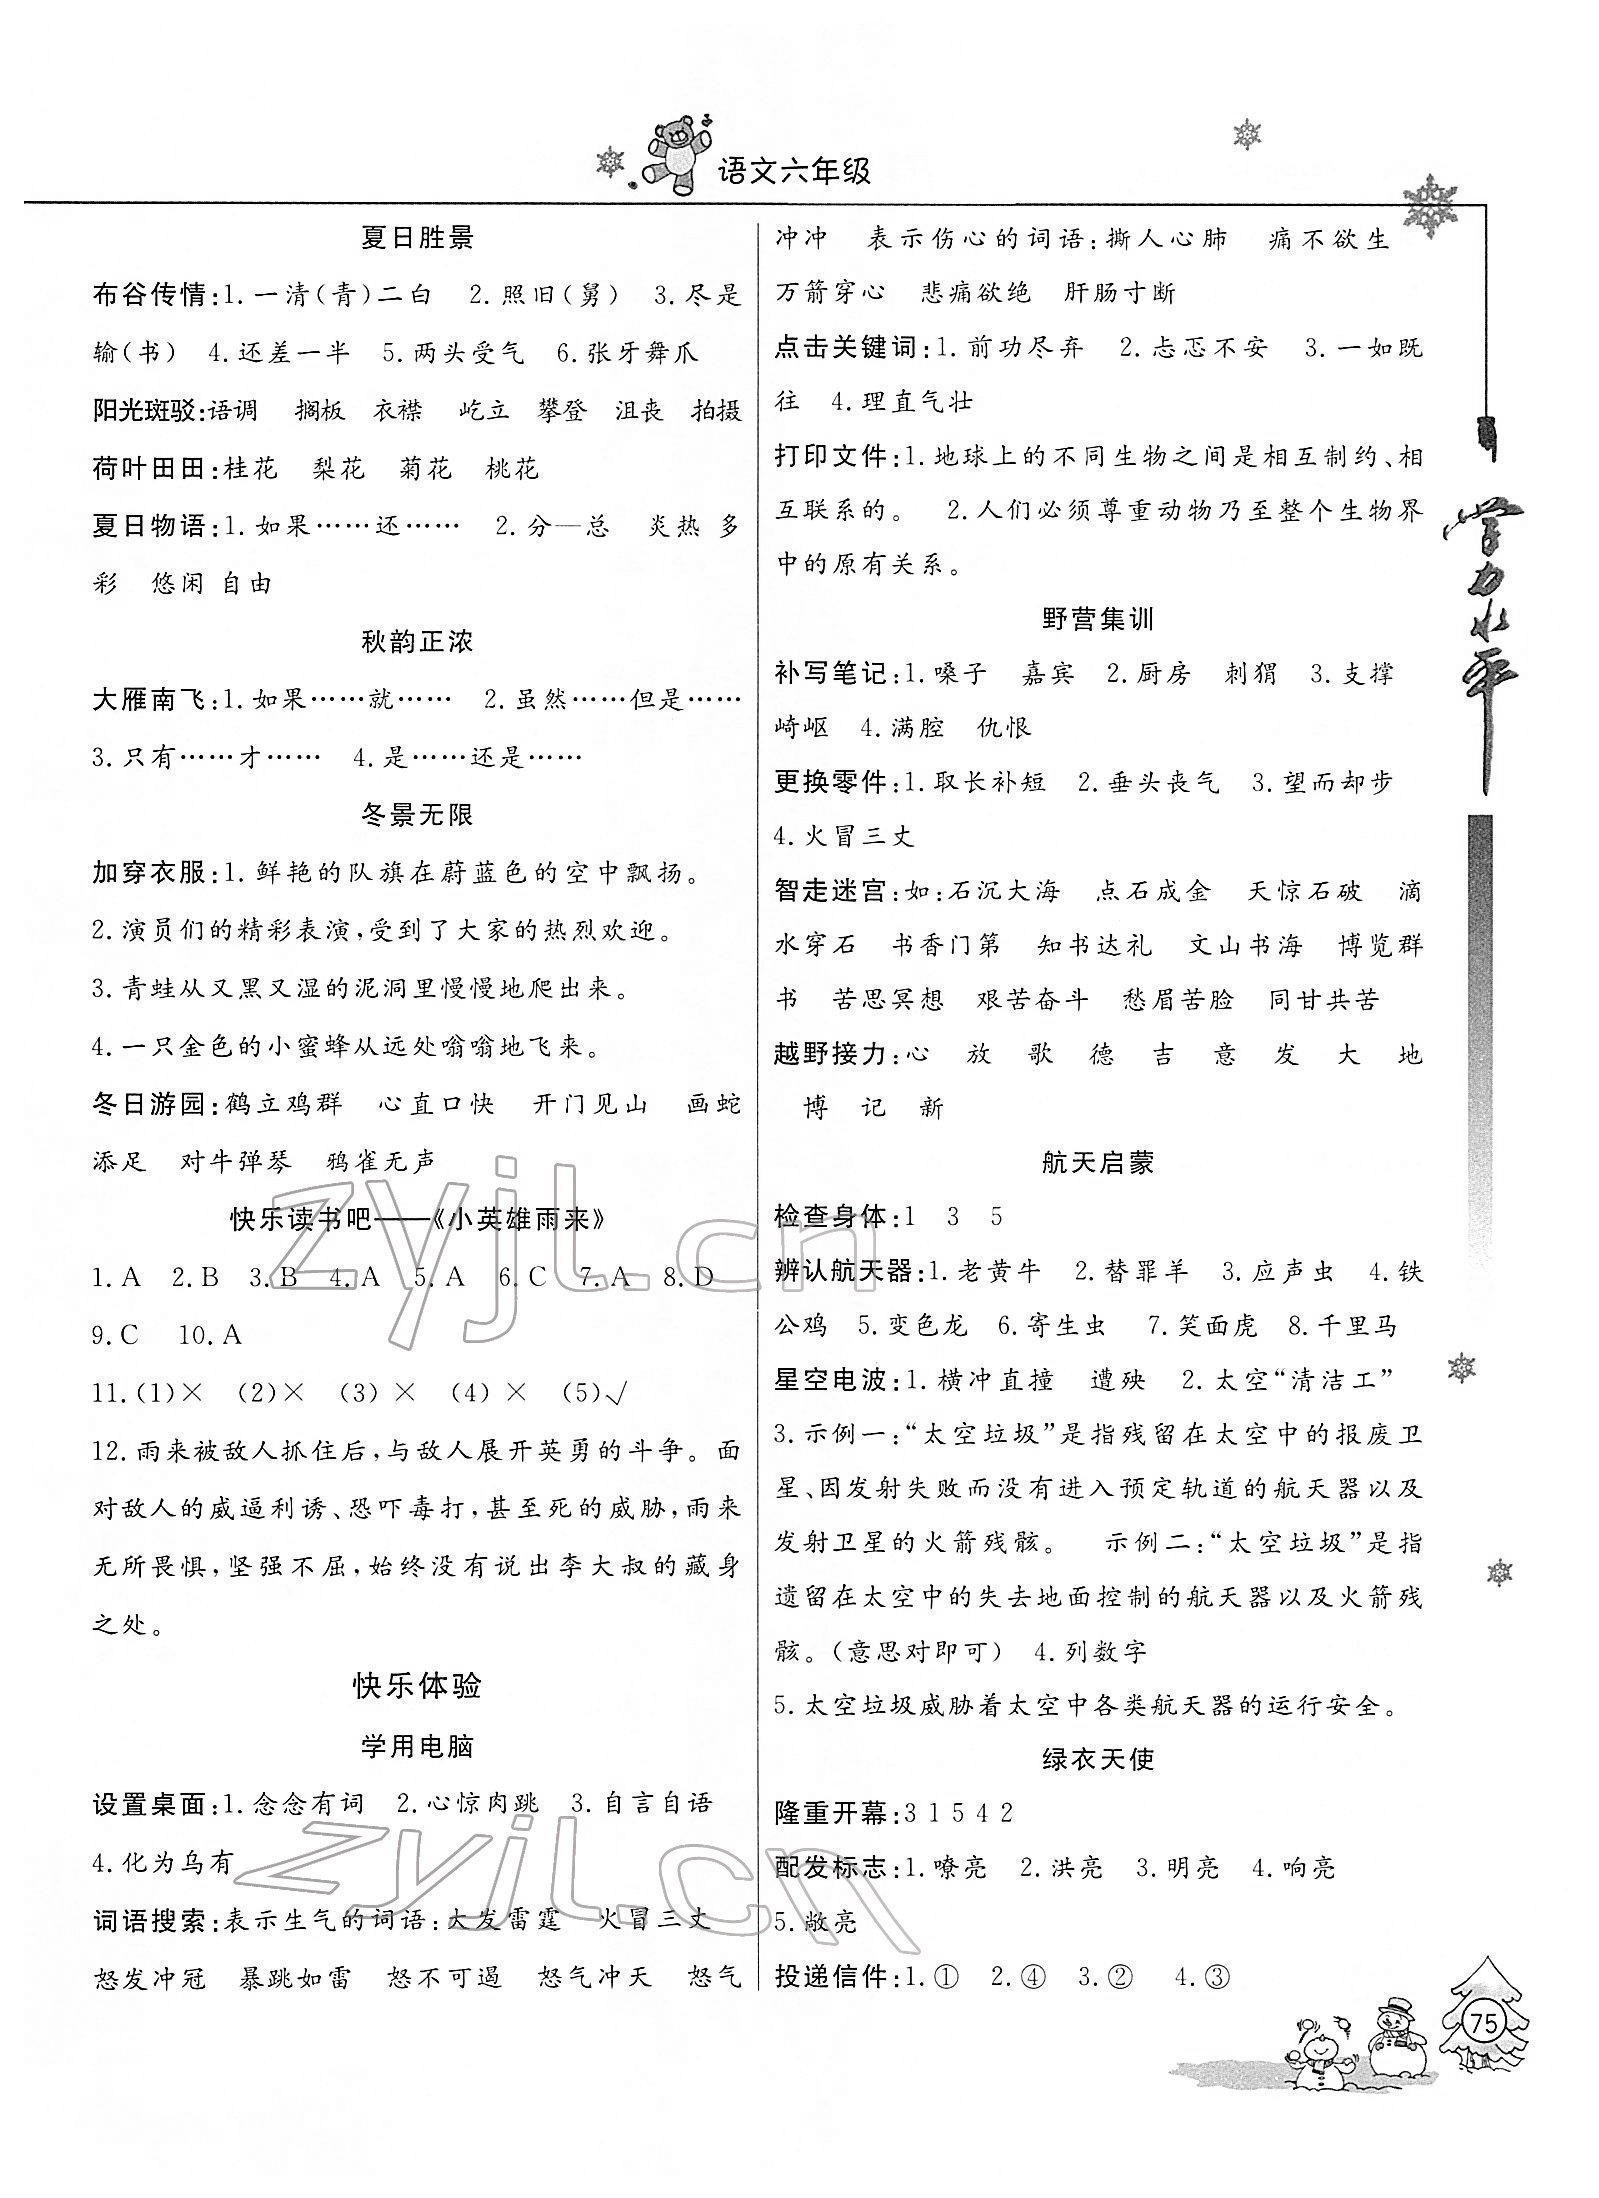 语文六年级
夏日胜景
布谷传情:1.一清(青)二白 2.照旧(舅) 3.尽是
输(书) 4.还差一半 5.两头受气 6.张牙舞爪
阳光斑驳:语调 搁板 衣襟 屹立 攀登 沮丧 拍摄
荷叶田田:桂花 梨花 菊花 桃花
夏日物语:1.如果……还…… 2.分—总 炎热 多
彩 悠闲 自由
秋韵正浓
大雁南飞:1.如果……就…… 2.虽然……但是……
3.只有……才…… 4.是……还是……
冬景无限
加穿衣服:1.鲜艳的队旗在蔚蓝色的空中飘扬。
2.演员们的精彩表演,受到了大家的热烈欢迎。
3.青蛙从又黑又湿的泥洞里慢慢地爬出来。
4.一只金色的小蜜蜂从远处嗡嗡地飞来。
冬日游园:鹤立鸡群 心直口快 开门见山 画蛇
添足 对牛弹琴 鸦雀无声
快乐读书吧——《小英雄雨来》
1.A 2.B 3.B 4.A 5.A 6.C 7.A 8.D
9.C 10.A
11.(1)× (2)× (3)× (4)× (5)√
12.雨来被敌人抓住后,与敌人展开英勇的斗争。面
对敌人的威逼利诱、恐吓毒打,甚至死的威胁,雨来
无所畏惧,坚强不屈,始终没有说出李大叔的藏身
之处。
快乐体验
学用电脑
设置桌面:1.念念有词 2.心惊肉跳 3.自言自语
4.化为乌有
词语搜索:表示生气的词语:大发雷霆 火冒三丈
怒发冲冠 暴跳如雷 怒不可遏 怒气冲天 怒气
冲冲 表示伤心的词语:撕人心肺 痛不欲生
万箭穿心 悲痛欲绝 肝肠寸断
点击关键词:1.前功尽弃 2.忐忑不安 3.一如既
往 4.理直气壮
打印文件:1.地球上的不同生物之间是相互制约、相
互联系的。 2.人们必须尊重动物乃至整个生物界
中的原有关系。
野营集训
补写笔记:1.嗓子 嘉宾 2.厨房 刺猬 3.支撑
崎岖 4.满腔 仇恨
更换零件:1.取长补短 2.垂头丧气 3.望而却步
4.火冒三丈
智走迷宫:如:石沉大海 点石成金 天惊石破 滴
水穿石 书香门第 知书达礼 文山书海 博览群
书 苦思冥想 艰苦奋斗 愁眉苦脸 同甘共苦
越野接力:心 放 歌 德 吉 意 发 大 地
博 记 新
航天启蒙
检查身体:1 3 5
辨认航天器:1.老黄牛 2.替罪羊 3.应声虫 4.铁
公鸡 5.变色龙 6.寄生虫 7.笑面虎 8.千里马
星空电波:1.横冲直撞 遭殃 2.太空“清洁工”
3.示例一:“太空垃圾”是指残留在太空中的报废卫
星、因发射失败而没有进入预定轨道的航天器以及
发射卫星的火箭残骸。 示例二:“太空垃圾”是指
遗留在太空中的失去地面控制的航天器以及火箭残
骸。(意思对即可) 4.列数字
5.太空垃圾威胁着太空中各类航天器的运行安全。
绿衣天使
隆重开幕:3 1 5 4 2
配发标志:1.嘹亮 2.洪亮 3.明亮 4.响亮
5.敞亮
投递信件:1.① 2.④ 3.② 4.③
学力水平
75
zyjl.cn
zyjl.cn